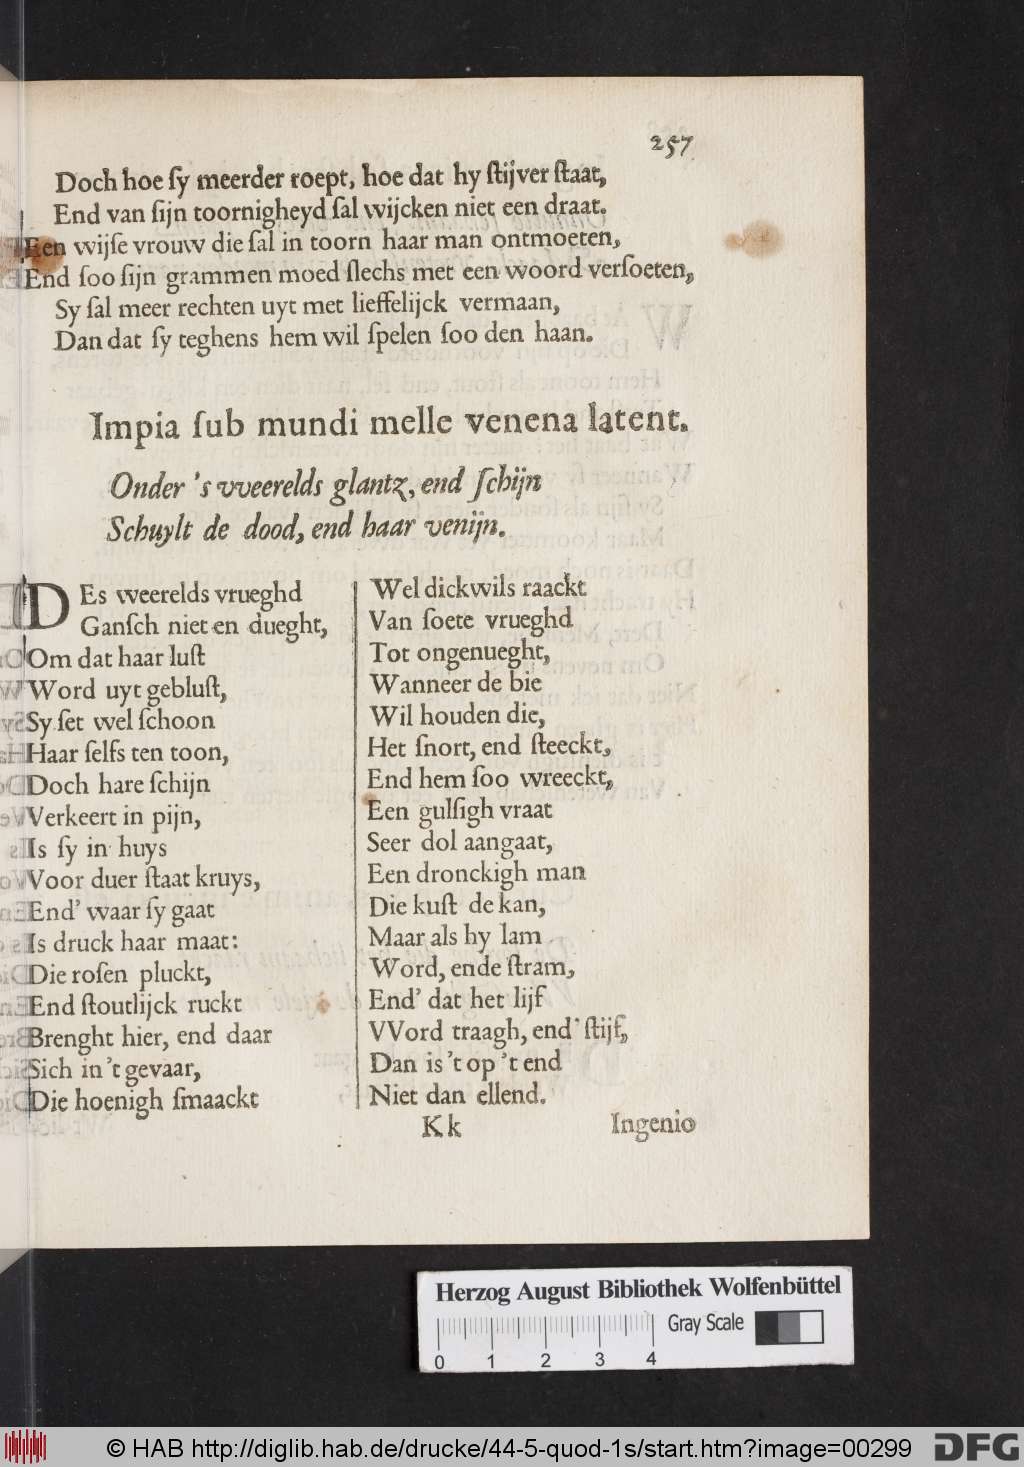 257
Doch hoe ſy meerder roept, hoe dat hy ſtijver ſtaat,
End van ſijn toornigheyd ſal wijcken niet een draat.
Een wijſe vrouw die ſal in toorn haar man ontmoeten,
End ſoo ſijn grammen moed ſlechs met een woord verſoeten,
Sy ſal meer rechten uyt met lieffelijck vermaan,
Dan dat ſy teghens hem wil ſpelen ſoo den haan.
Impia ſub mundi melle venena latent.
Onder 's vveerelds glantz, end ſchijn
Schuylt de dood, end haar venijn.
DEs weerelds vrueghd
Ganſch niet en dueght,
Om dat haar luſt
Word uyt gebluſt,
Sy ſet wel ſchoon
Haar ſelfs ten toon,
Doch hare ſchijn
Verkeert in pijn,
Is ſy in huys
Voor duer ſtaat kruys,
End' waar ſy gaat
Is druck haar maat:
Die roſen pluckt,
End ſtoutlijck ruckt
Brenght hier, end daar
Sich in 't gevaar,
Die hoenigh ſmaackt
Wel dickwils raackt
Van ſoete vrueghd
Tot ongenueght,
Wanneer de bie
Wil houden die,
Het ſnort, end ſteeckt,
End hem ſoo wreeckt,
Een gulſigh vraat
Seer dol aangaat,
Een dronckigh man
Die kuſt de kan,
Maar als hy lam
Word, ende ſtram,
End' dat het lijf
VVord traagh, end' ſtijf,
Dan is 't op 't end
Niet dan ellend.
Kk Ingenio
Herzog August Bibliothek Wolfenbüttel
Gray Scale
0 1 2 3 4
© HAB http://diglib.hab.de/drucke/44-5-quod-1s/start.htm?image=00299
DFG